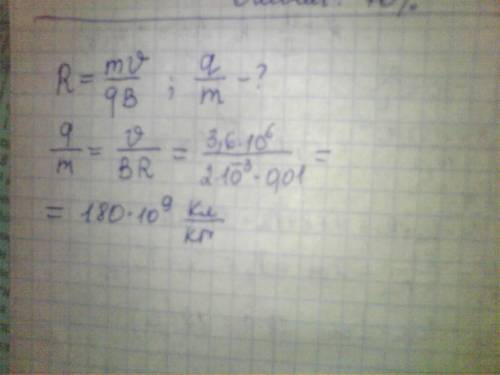 R = mv/qB ; q/m - ?
q/m = v/BR = 3,6·10⁶/2·10⁻³·0,01 =
= 180·10⁹ Кл/кг